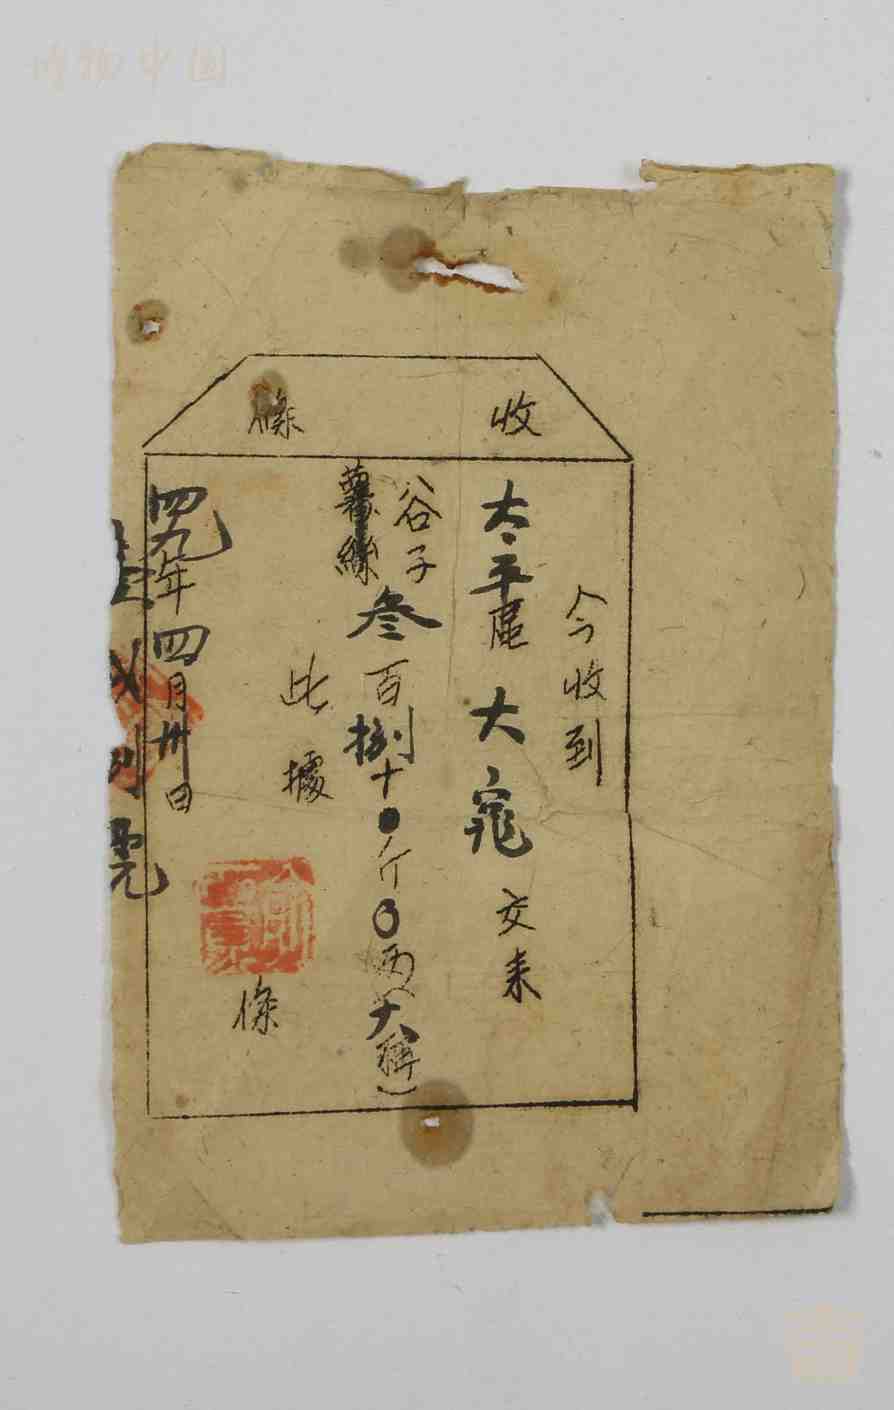 博物中国
收條
今收到
太平區大窕交来
谷子
薯絲
叁百捌十0斤0两(大秤)
此據
條
四九年四月卅日